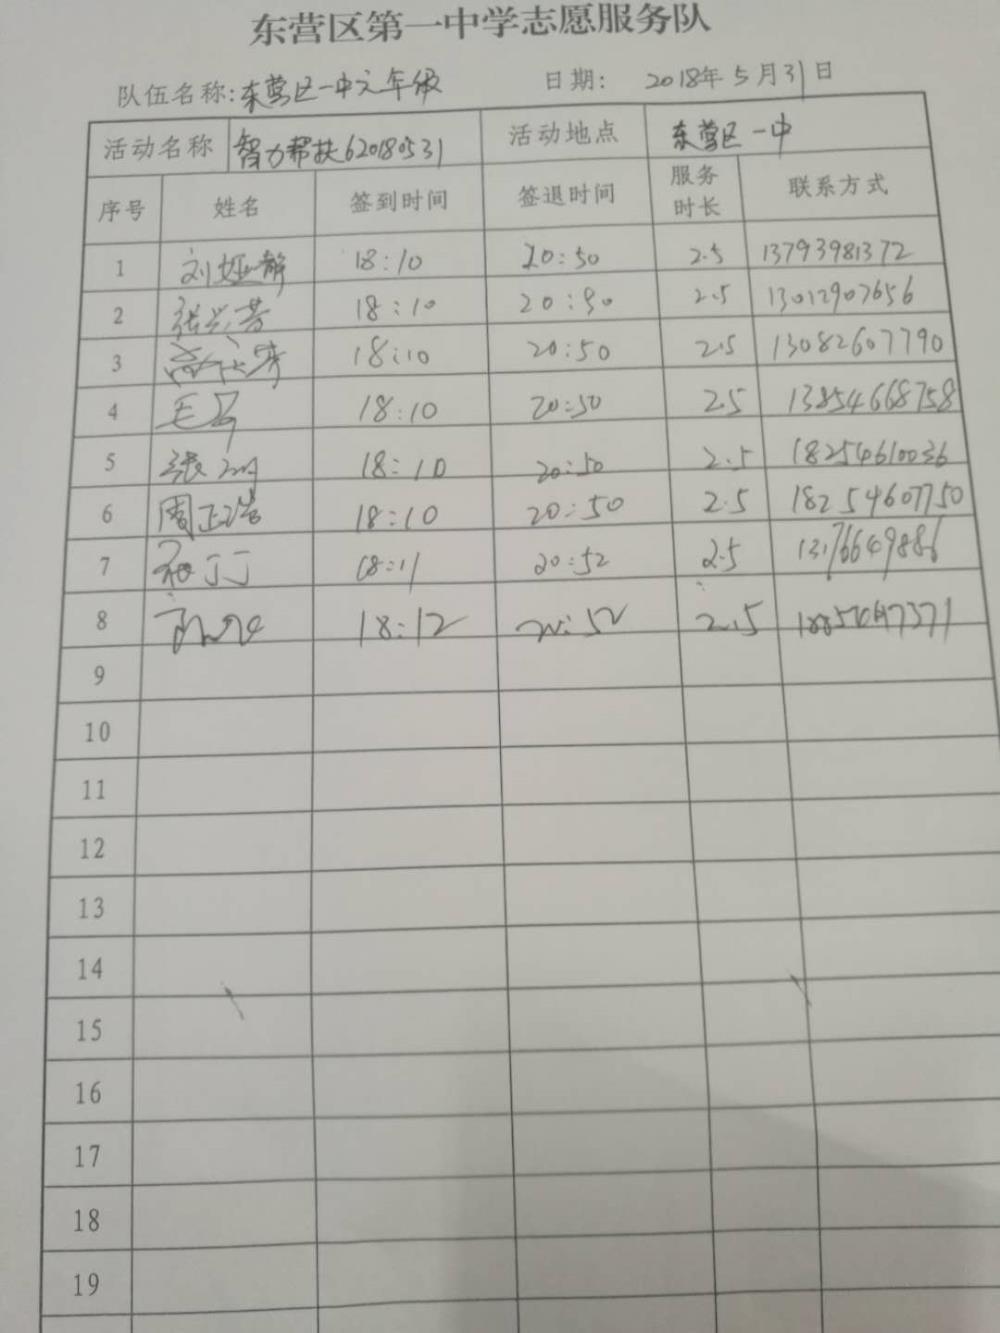 东营区第一中学志愿服务队
队伍名称:东营区一中六年级 日期: 2018年5月31日
活动名称 智力帮扶620180531 活动地点 东营区一中
序号 姓名 签到时间 签退时间 服务时长 联系方式
1 刘娅静 18:10 20:50 2.5 13793981372
2 张兴芳 18:10 20:50 2.5 13012907656
3 18:10 20:50 2.5 13082607790
4 毛 18:10 20:50 2.5 13854668758
5 张 18:10 20:50 2.5 18254610036
6 周正浩 18:10 20:50 2.5 18254607750
7 丁丁 18:11 20:52 2.5 13176649886
8 18:12 20:52 2.5
9
10
11
12
13
14
15
16
17
18
19